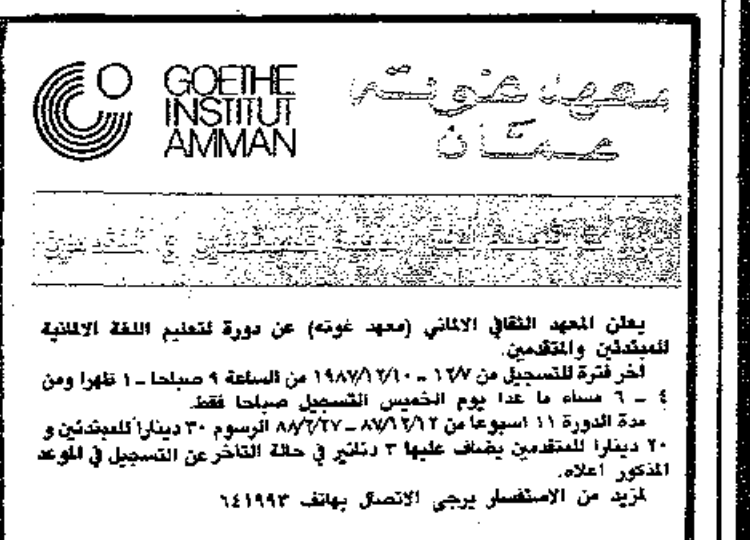 GOETHE
INSTITUT
AMMAN
معهد غوته
عمّان
دورة لتعليم اللغة الالمانية للمبتدئين و المتقدمين
يعلن المعهد الثقافي الالماني (معهد غوته) عن دورة لتعليم اللغة الالمانية
للمبتدئين والمتقدمين.
اخر فترة للتسجيل من ١٢/٧ - ١٩٨٧/١٢/١٠ من الساعة ٩ صباحا - ١ ظهرا ومن
٤ - ٦ مساء ما عدا يوم الخميس التسجيل صباحا فقط.
مدة الدورة ١١ اسبوعا من ٨٧/١٢/١٢ - ٨٨/٢/٢٧ الرسوم ٣٠ دينارا للمبتدئين و
٢٠ دينارا للمتقدمين يضاف عليها ٣ دنانير في حالة التاخر عن التسجيل في الموعد
المذكور اعلاه.
لمزيد من الاستفسار يرجى الاتصال بهاتف ٦٤١٩٩٣